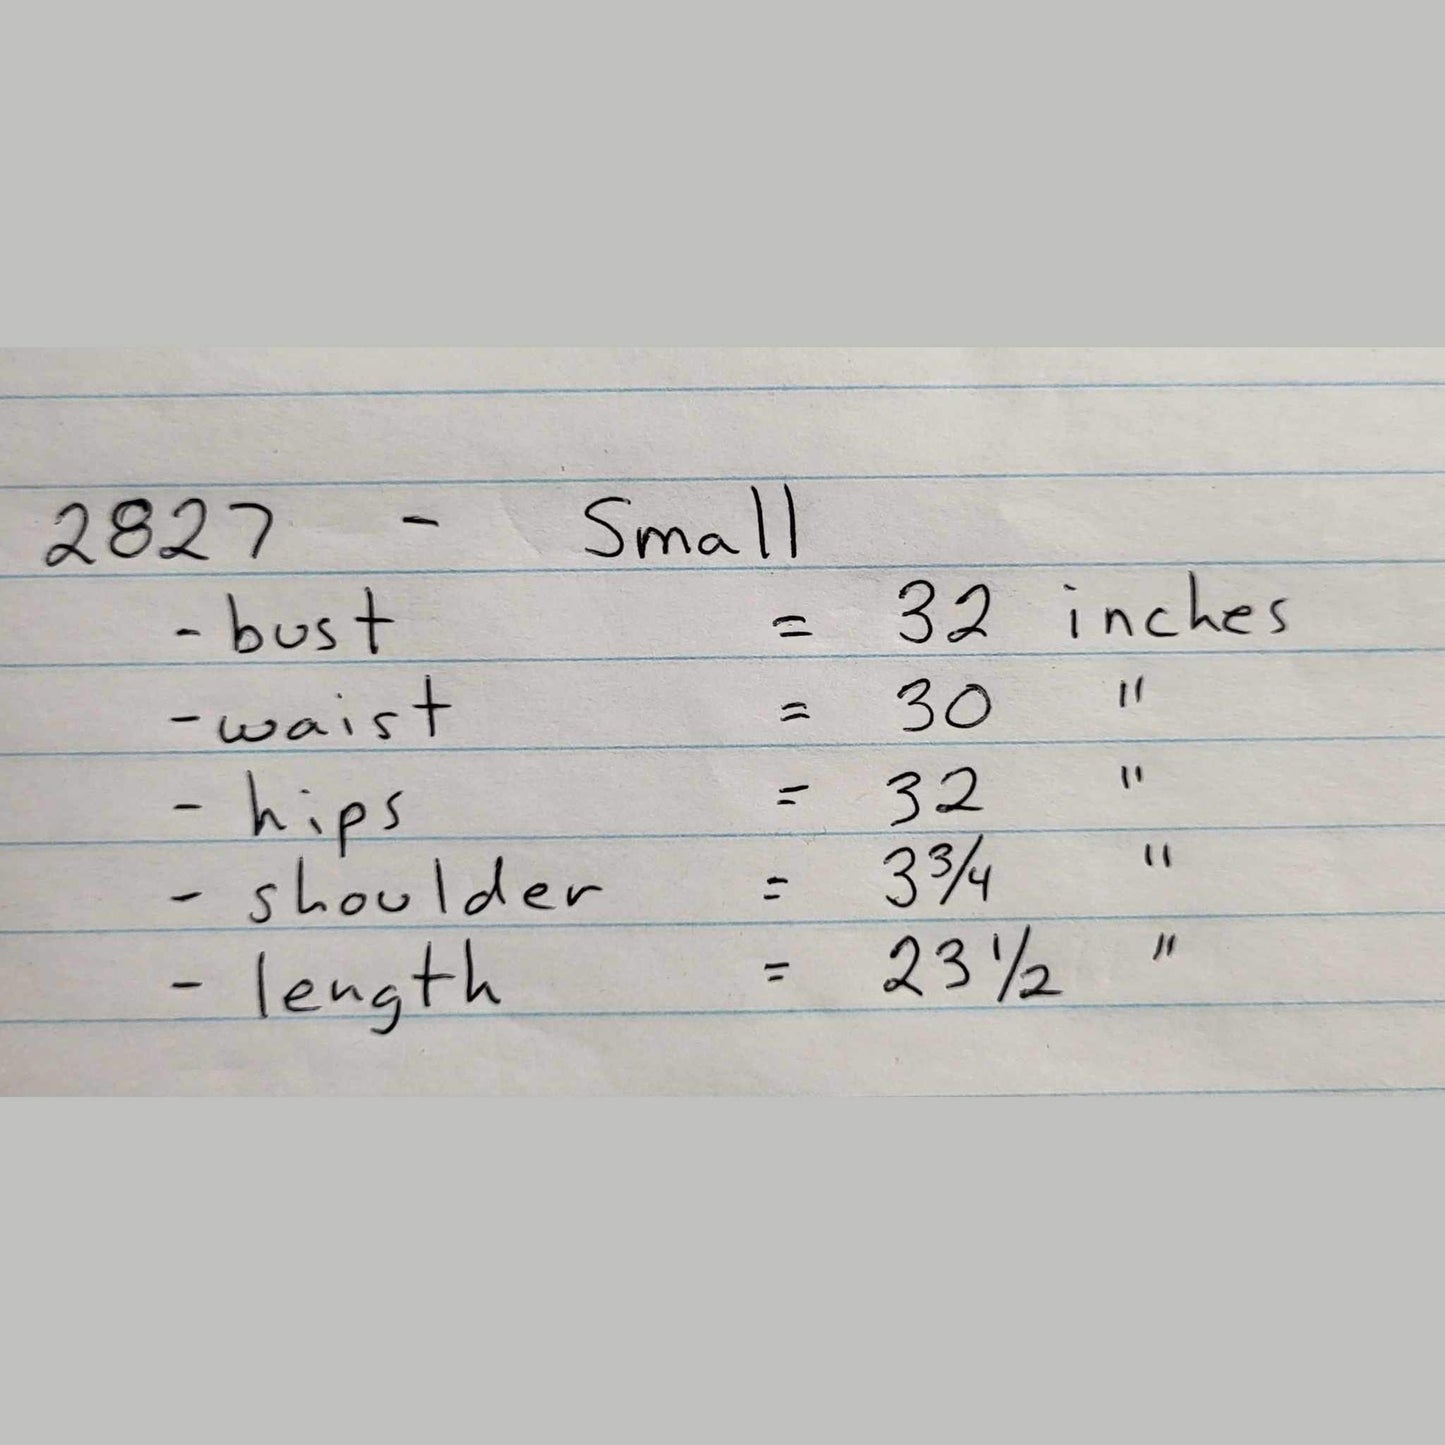 2827 - Small
- bust = 32 inches
- waist = 30 "
- hips = 32 "
- shoulder = 3 3/4 "
- length = 23 1/2 "